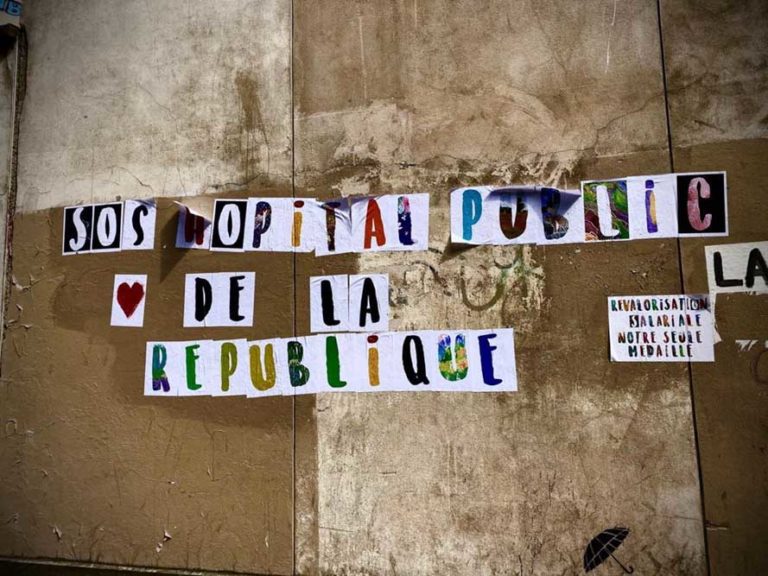 SOS HOPITAL PUBLIC
DE LA
REPUBLIQUE
LA
REVALORISATION
SALARIALE
NOTRE SEULE
MEDAILLE